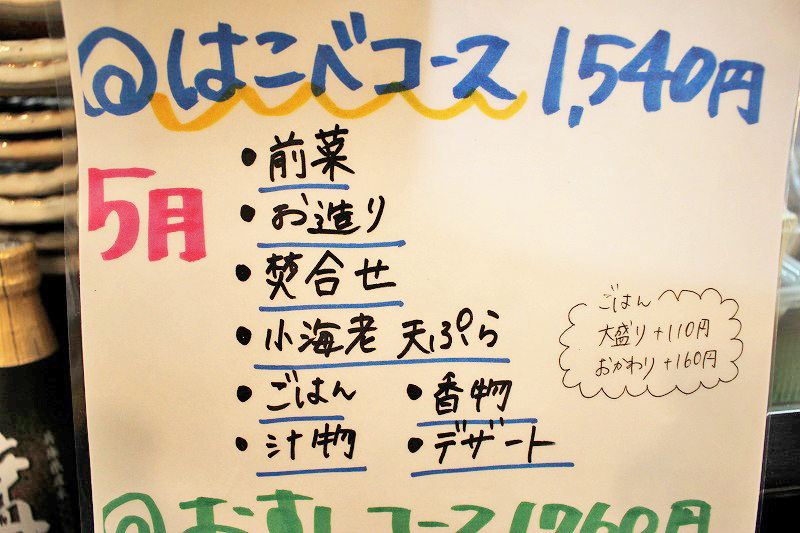 @はこべコース 1,540円
5月
・前菜
・お造り
・焚合せ
・小海老 天ぷら
・ごはん ・香物
・汁物 ・デザート
ごはん
大盛り+110円
おかわり+160円
@おすしコース1760円